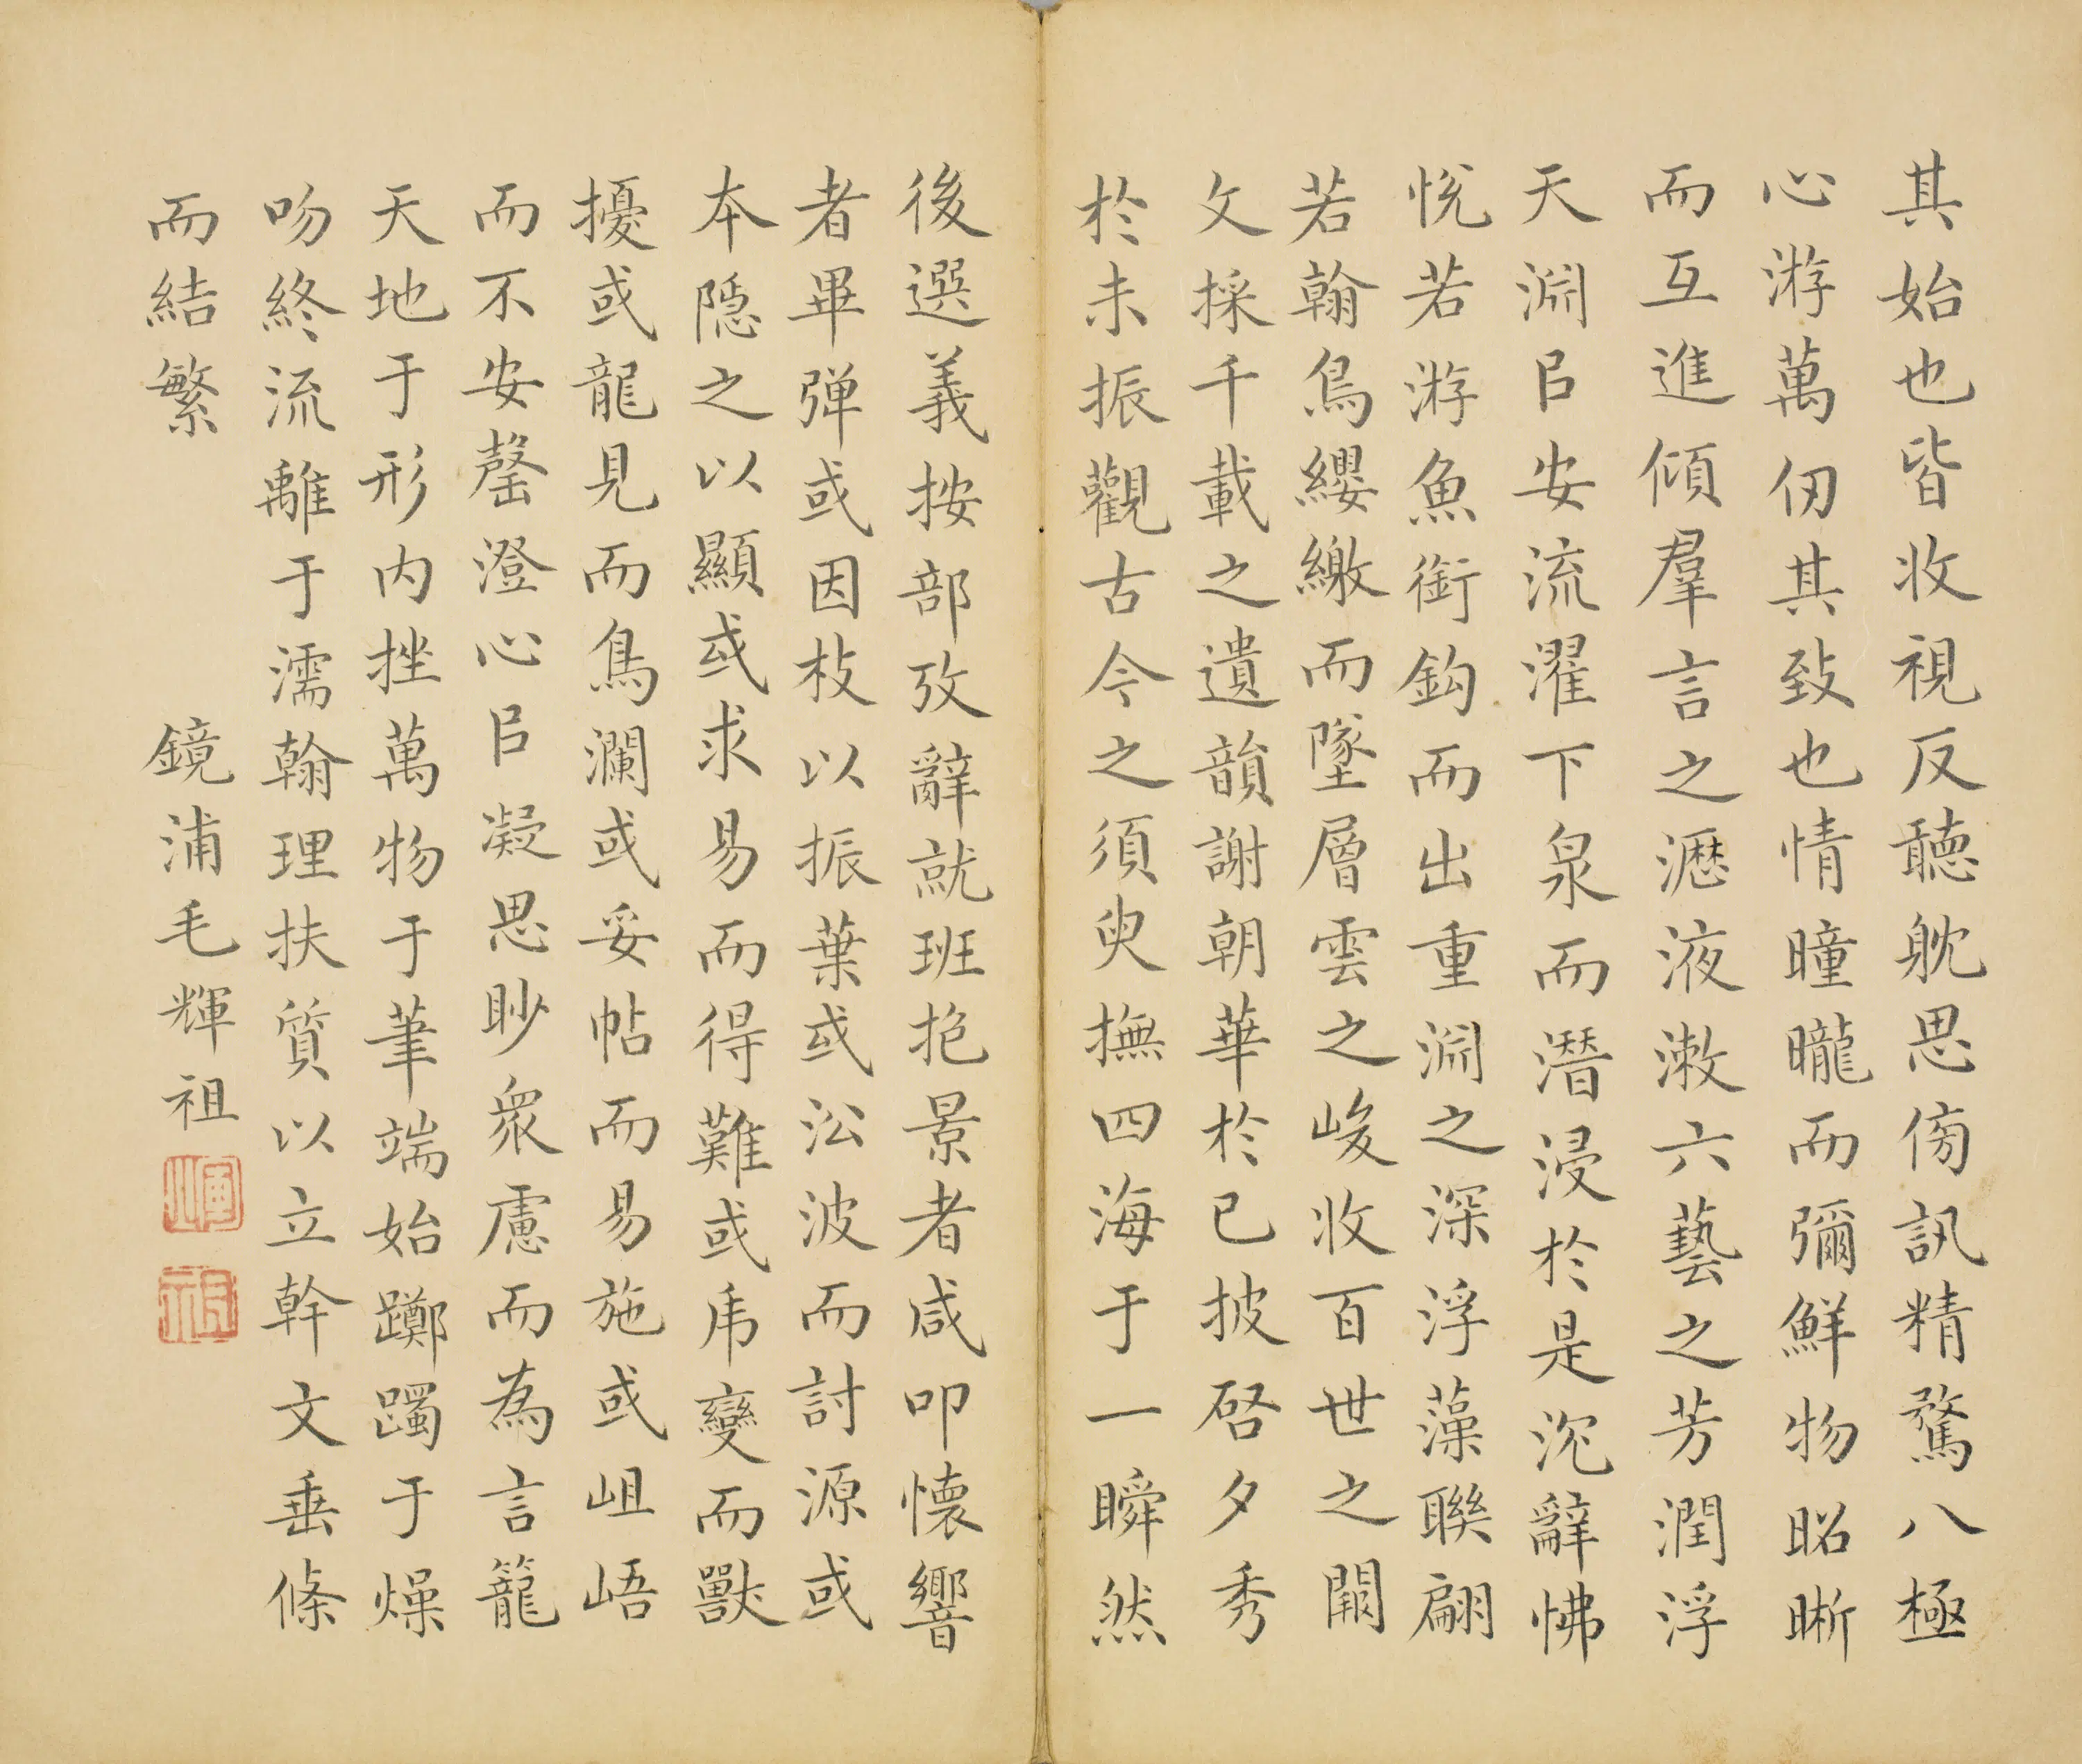 其始也皆收視反聽躭思傍訊精騖八極
心游萬仞其致也情曈曨而彌鮮物昭晣
而互進傾羣言之瀝液漱六藝之芳潤浮
天淵㠯安流濯下泉而潛浸於是沉辭怫
悅若游魚銜鈎而出重淵之深浮藻聯翩
若翰鳥纓繳而墜層雲之峻收百世之闕
文採千載之遺韻謝朝華於已披啓夕秀
於未振觀古今之須臾撫四海于一瞬然
後選義按部攷辭就班抱景者咸叩懷響
者畢彈或因枝以振葉或㳂波而討源或
本隱之以顯或求易而得難或虎變而獸
擾或龍見而鳥瀾或妥帖而易施或岨峿
而不安罄澄心㠯凝思眇衆慮而為言籠
天地于形内挫萬物于筆端始躑躅于燥
吻終流離于濡翰理扶質以立幹文垂條
而結繁
鏡浦毛輝祖
輝
祖